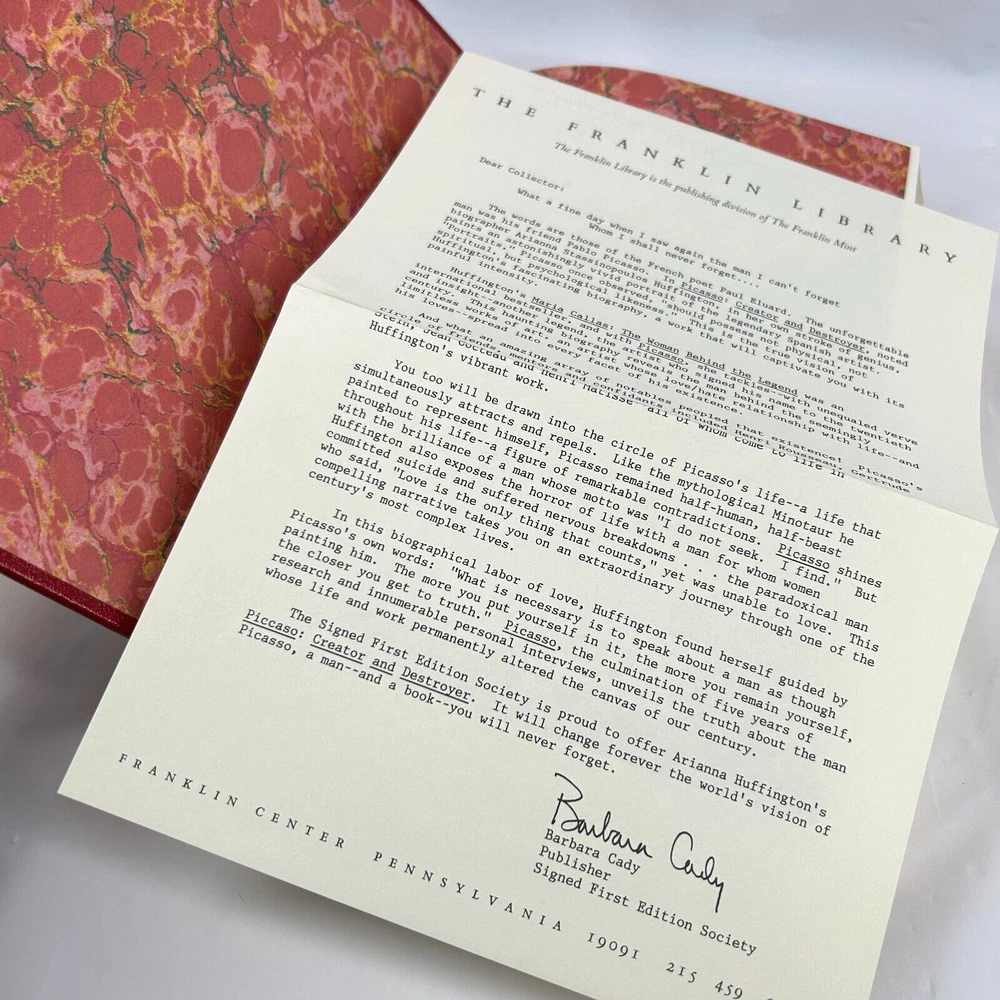 THE FRANKLIN LIBRARY
The Franklin Library is the publishing division of The Franklin Mint
Dear Collector:
What a fine day when I saw again the man I can't forget
Whom I shall never forget....
The words are those of the French poet Paul Eluard. The unforgettable
man was his friend Pablo Picasso. In Picasso: Creator and Destroyer, noted
biographer Arianna Stassinopoulos Huffington, in her own stroke of genius,
paints an astonishingly vivid portrait of the legendary Spanish artist.
"Portraits," Picasso once observed, "should possess not physical, not
spiritual, but psychological likeness." This is the true vision of
Huffington's fascinating biography, a work that will captivate you with its
painful intensity.
Huffington's Maria Callas: The Woman Behind the Legend was an
international bestseller, and with Picasso, she tackles--with unequaled verve
and insight--another legend, the artist who signed his name to the twentieth
century. This haunting biography the man behind the seemingly
limitless works of art, an artist whose love/hate relationship with life--and
his loves--spread into every facet of his existence.
And what an amazing array of notables peopled that existence! Picasso's
circle of friends, mentors and confidents included Henri Rousseau, Gertrude
Stein, Jean Cocteau and Henri Matisse--all of whom come to life in
Huffington's vibrant work.
You too will be drawn into the circle of Picasso's life--a life that
simultaneously attracts and repels. Like the mythological Minotaur he
painted to represent himself, Picasso remained half-human, half-beast
throughout his life--a figure of remarkable contradictions. Picasso shines
with the brilliance of a man whose motto was "I do not seek. I find." But
Huffington also exposes the horror of life with a man for whom women
committed suicide and suffered nervous breakdowns . . . the paradoxical man
who said, "Love is the only thing that counts," yet was unable to love. This
compelling narrative takes you on an extraordinary journey through one of the
century's most complex lives.
In this biographical labor of love, Huffington found herself guided by
Picasso's own words: "What is necessary is to speak about a man as though
painting him. The more you put yourself in it, the more you remain yourself,
the closer you get to truth." Picasso, the culmination of five years of
research and innumerable personal interviews, unveils the truth about the man
whose life and work permanently altered the canvas of our century.
The Signed First Edition Society is proud to offer Arianna Huffington's
Piccaso: Creator and Destroyer. It will change forever the world's vision of
Picasso, a man--and a book--you will never forget.
Barbara Cady
Barbara Cady
Publisher
Signed First Edition Society
FRANKLIN CENTER PENNSYLVANIA 19091 215 459